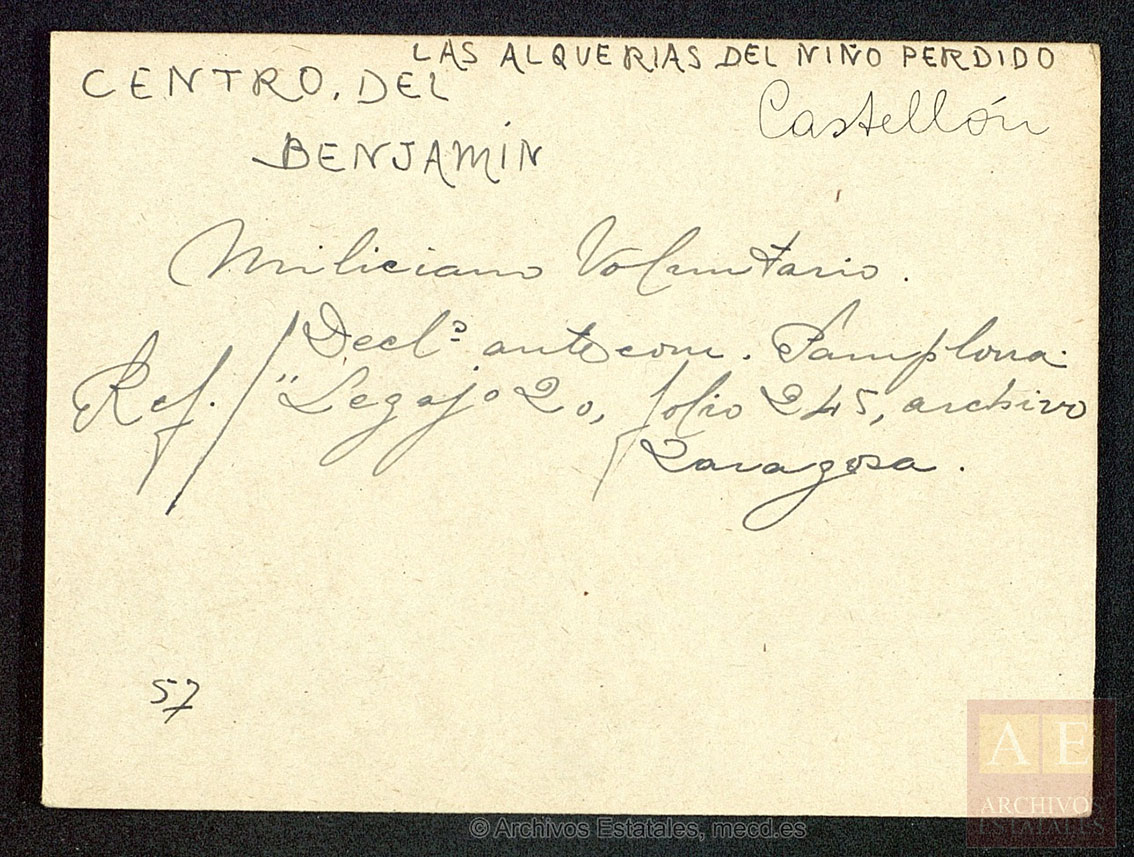 LAS ALQUERIAS DEL NIÑO PERDIDO
CENTRO, DEL
Castellón
BENJAMÍN
Miliciano Voluntario.
Declº ante com. Pamplona.
Ref. / "Legajo 20, folio 245, archivo
Zaragosa.
57
AE
ARCHIVOS
ESTATALES
© Archivos Estatales, mecd.es